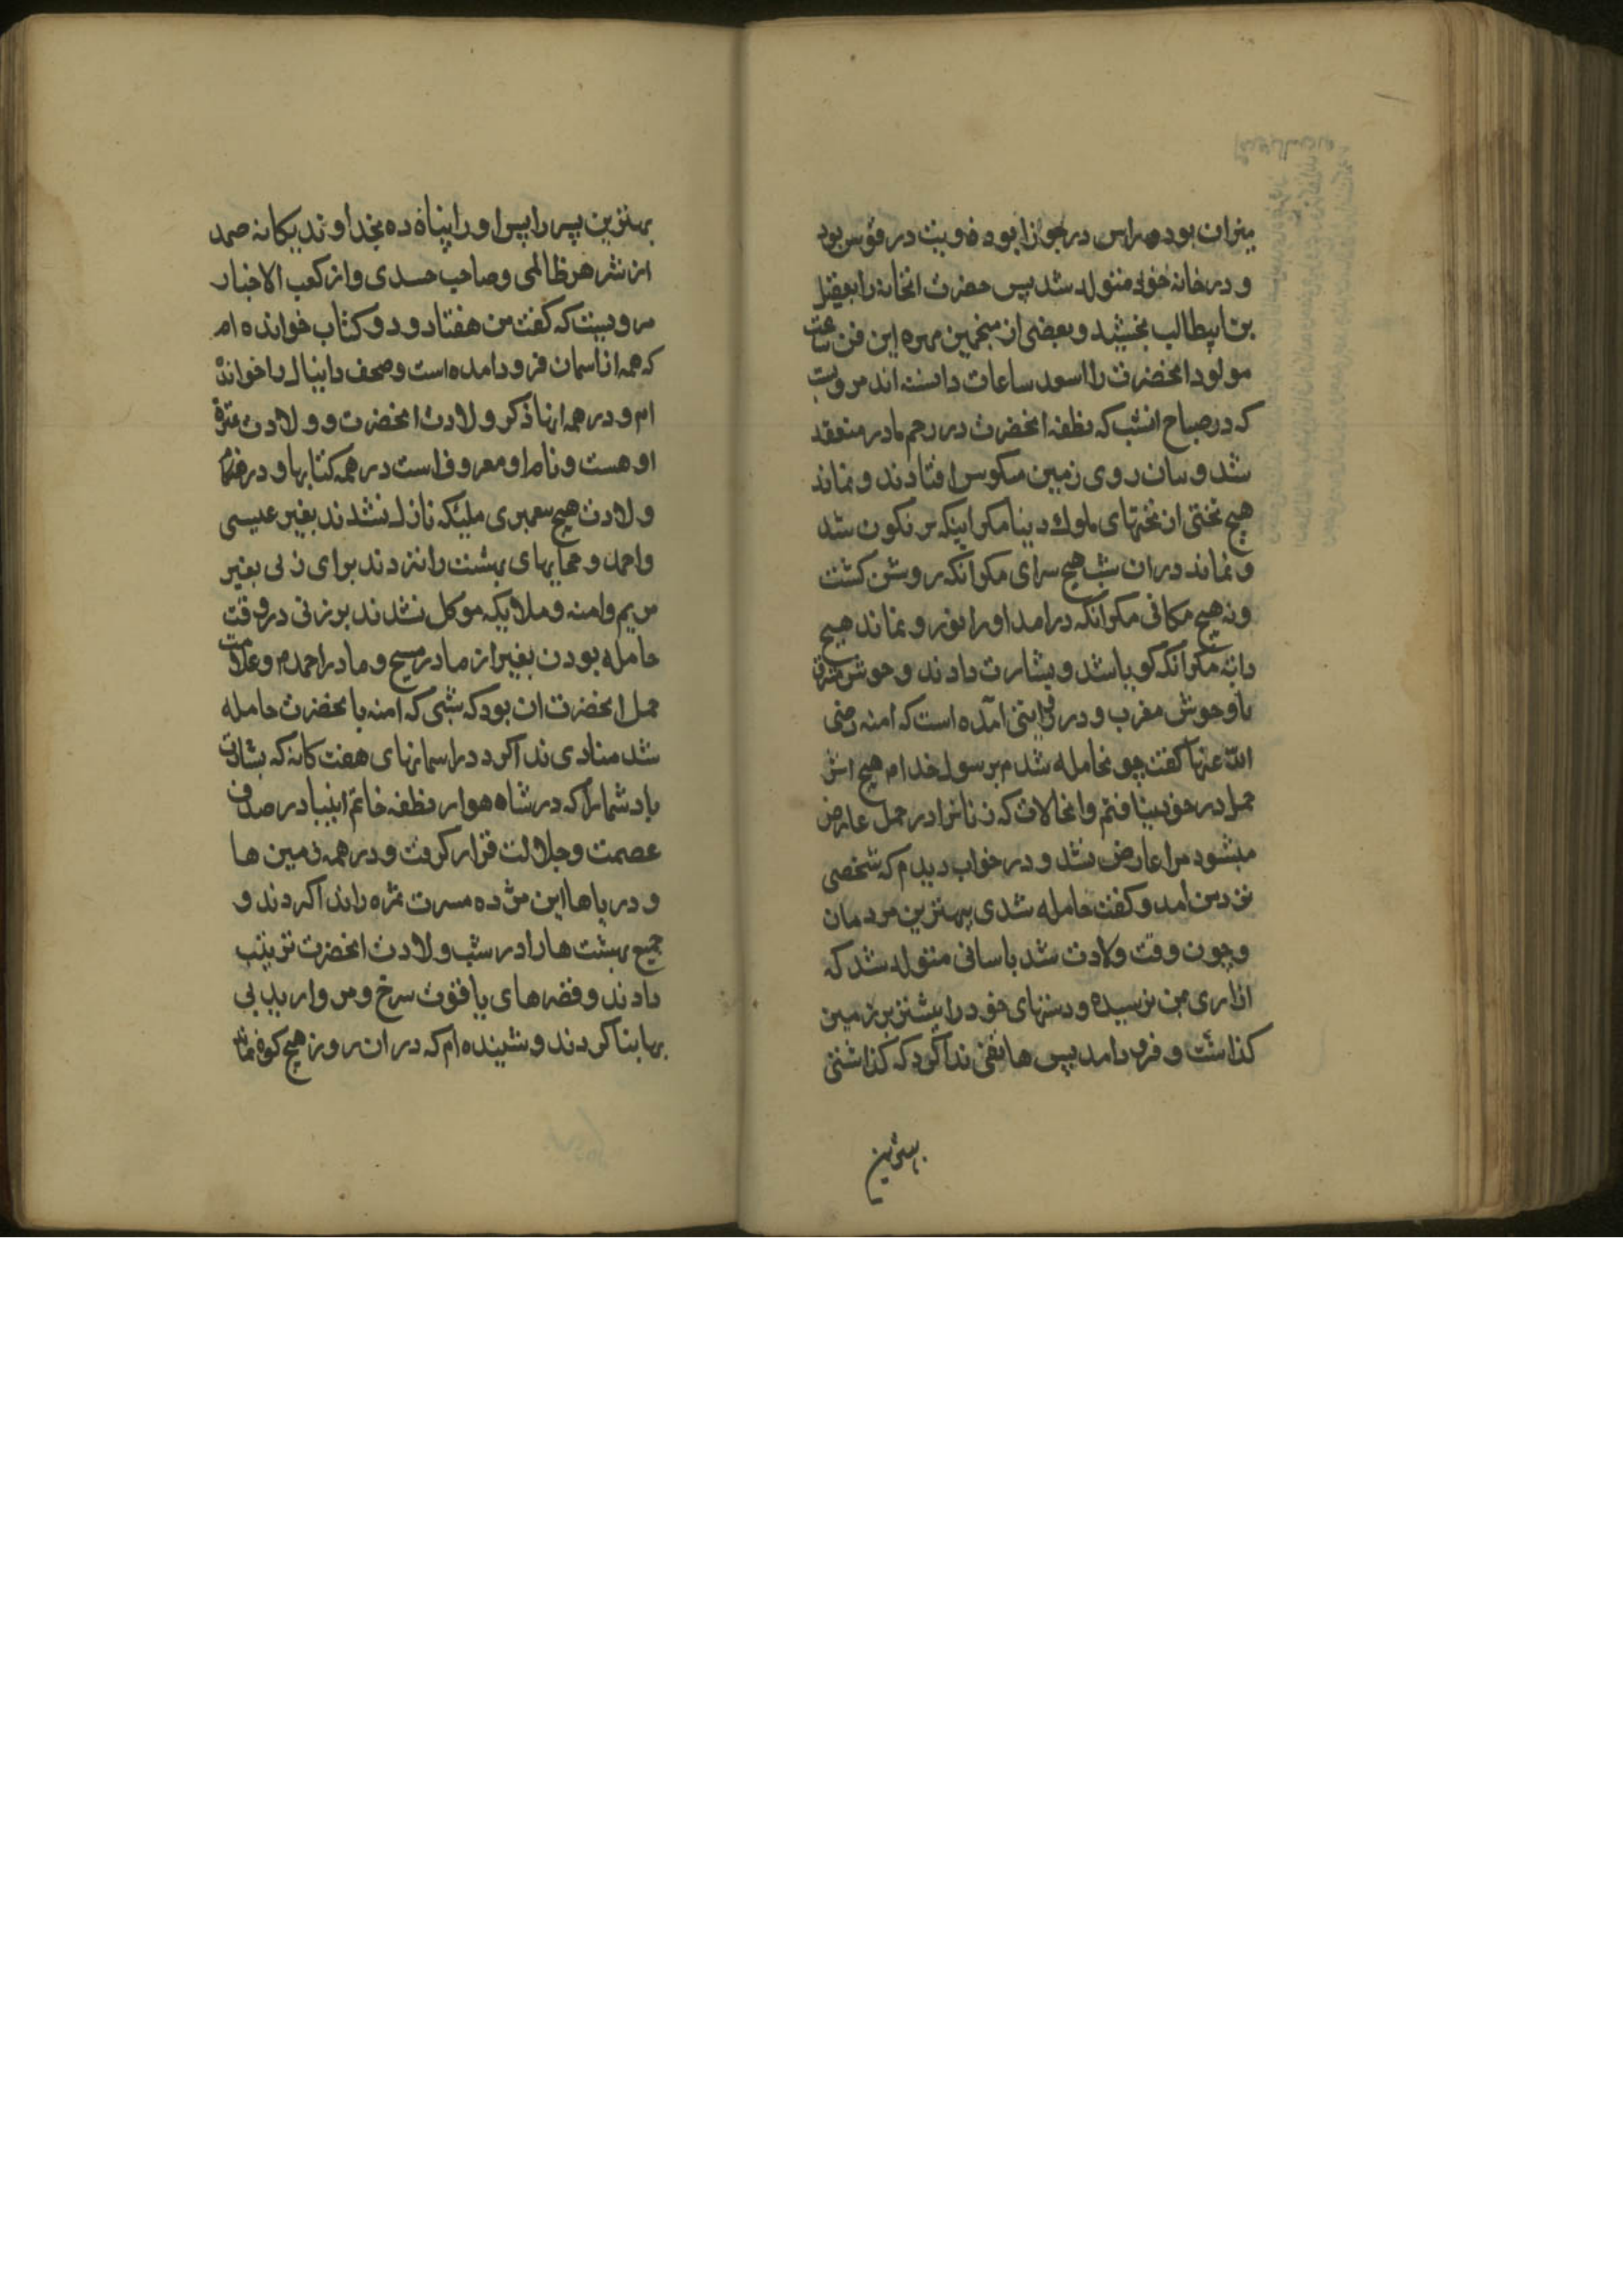 میزان بوده و راس در جوزا بوده و ذنب در قوس بود
و در خانه خود متولد شد پس حضرت انخانه را بعقیل
بن ابیطالب بخشید و بعضی از منجمین مهره این فن ساعت
مولود انحضرت را اسعد ساعات دانسته اند مرویست
که در صباح انشب که نطفه انحضرت در رحم مادر منعقد
شد و بتان روی زمین منکوس افتادند و نماند
هیچ تختی از تختهای ملوک دنیا مکر اینکه سر نکون شد
و نماند در ان شب هیچ سرای مکر انکه روشن کشت
و نه هیچ مکانی مکر انکه در امد او را نور و نماند هیچ
دابه مکر انکه کویا شد و بشارت دادند وحوش مشرق
با وحوش مغرب و در روایتی آمده است که امنه رضی
الله عنها کفت چو نحامله شدم برسول خدا م هیچ اثر
حمل در خود نیافتم و انحالات که زنانرا در حمل عارض
میشود مرا عارض نشد و در خواب دیدم که شخصی
نزد من امد و کفت حامله شدی ببهترین مردمان
و چون وقت ولادت شد باسانی متولد شد که
ازاری بمن نرسیده و دستهای خود را پیشتر بر زمین
کذاشت و فرود امد پس هاتفی ندا کرد که کذاشتی
بهترین
بهترین پسر را پس او را پناه ده بخداوند یکانه صمد
از شر هر ظالمی و صاحب حسدی و از کعب الاخبار
مرویست که کفت من هفتاد و دو کتاب خوانده ام
که همه از اسمان فرود امده است و صحف دانیال را خوانده
ام و در همه انها ذکر ولادت انحضرت و ولادت عترة
او هست و نام او معروف است در همه کتابها و در هنکام
ولادت هیچ پیغمبری ملیکه نازل نشدند بغیر عیسی
و احمد و حجابهای بهشت را نزدند برای زنی بغیر
مریم و امنه و ملایکه موکل نشدند بر زنی در وقت
حامله بودن بغیر از مادر مسیح و مادر احمد م و علامت
حمل انحضرت ان بود که شبی که امنه بانحضرت حامله
شد منادی ندا کرد در اسمانهای هفت کانه که بشارت
باد شما را که در شاه هوار نطفه خاتم انبیا در صدف
عصمت و جلالت قرار کرفت و در همه زمین ها
و دریاها این مژده مسرت ثمره را ندا کردند و
جمیع بهشت ها را در شب ولادت انحضرت تزیینب
دادند و قصرهای یاقوت سرخ و مروارید بی
بها بنا کردند و شنیده ام که در ان روز هیچ کوه نماند